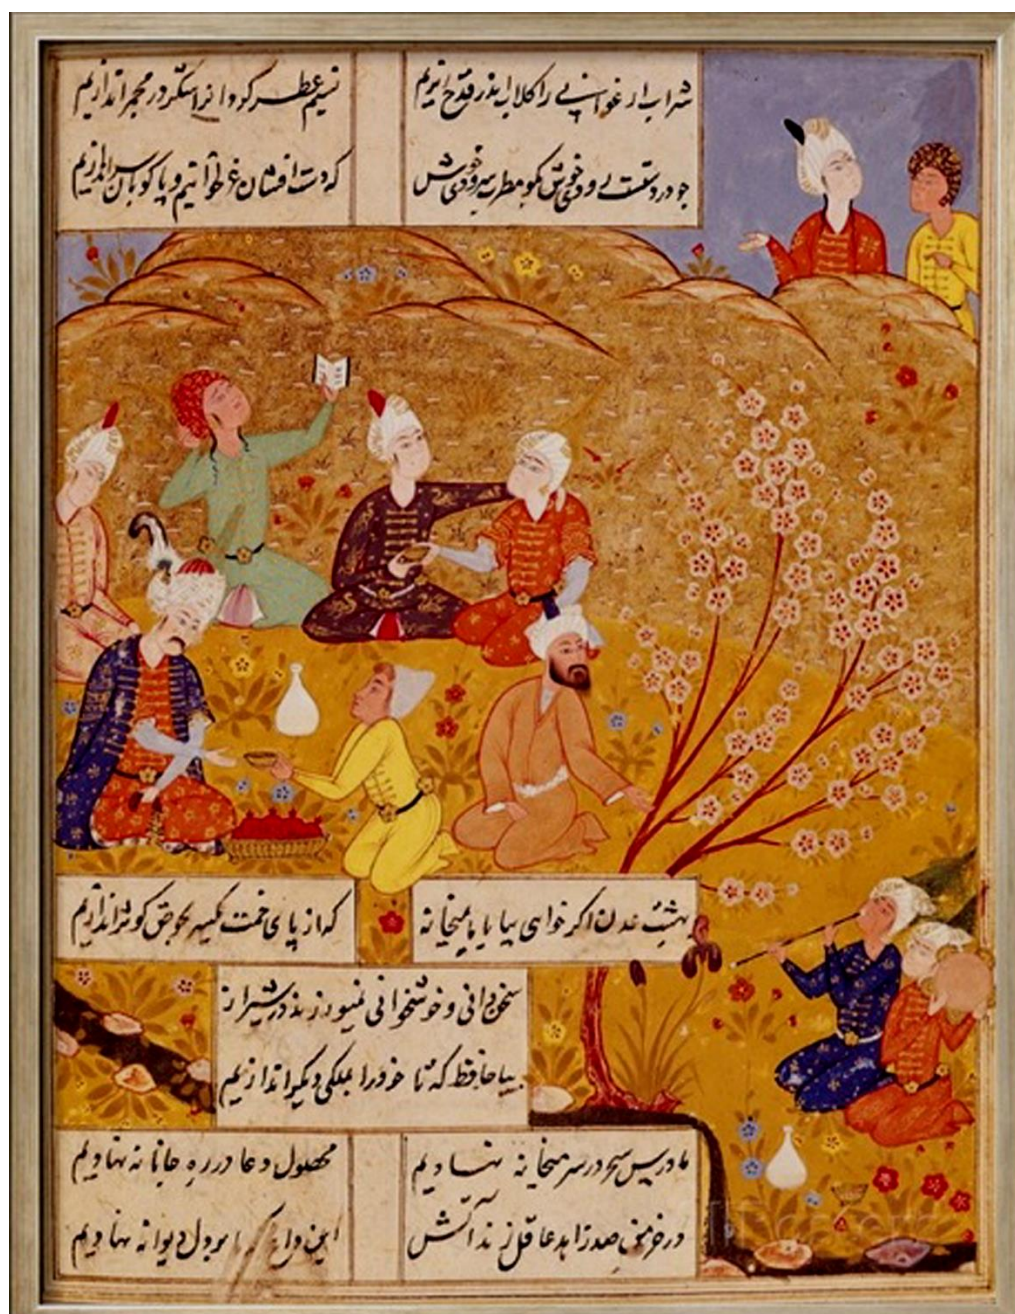 شراب ارغوانی را گلاب اندر قدح ریزیم
نسیم عطر گردان را شکر در مجمر اندازیم
چو در دستست رودی خوش بگو مطرب سرودی خوش
که دست افشان غزل خوانیم و پاکوبان سر اندازیم
بهشت عدن اگر خواهی بیا با ما بمیخانه
که از پای خمت یکسر بحوض کوثر اندازیم
سخن دانی و خوشخوانی نمیورزند در شیراز
بیا حافظ که تا خود را بملکی دیگر اندازیم
ما درس سحر در سر میخانه نهادیم
محصول دعا در ره جانانه نهادیم
در خرمن صد زاهد عاقل زند آتش
این داغ که ما بر دل دیوانه نهادیم